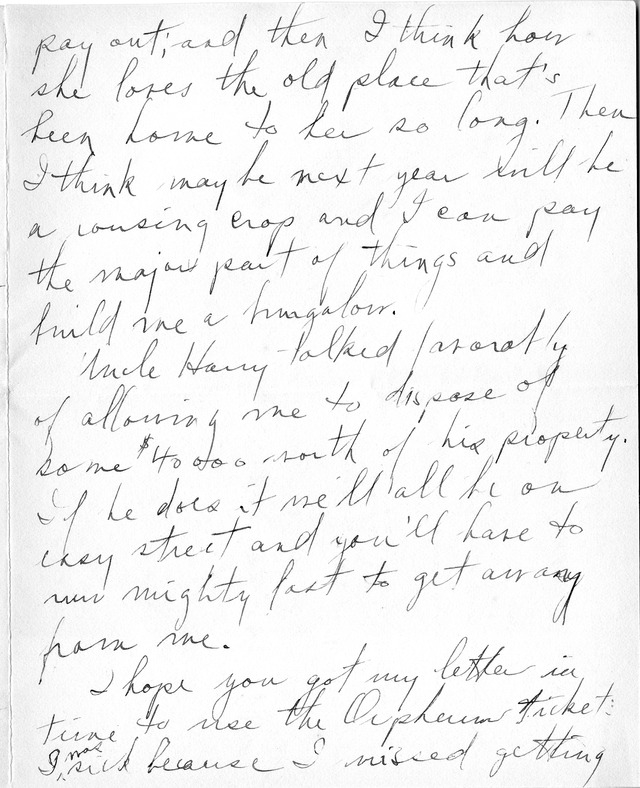 pay out; and then I think how
she loves the old place that's
been home to her so long. Then
I think maybe next year will be
a rousing crop and I can pay
the major part of things and
build me a bungalow.
Uncle Harry talked favorably
of allowing me to dispose of
some $40000 worth of his property.
If he does it we'll all be on
easy street and you'll have to
run mighty fast to get away
from me.
I hope you got my letter in
time to use the Orpheum tickets
I was sick because I missed getting